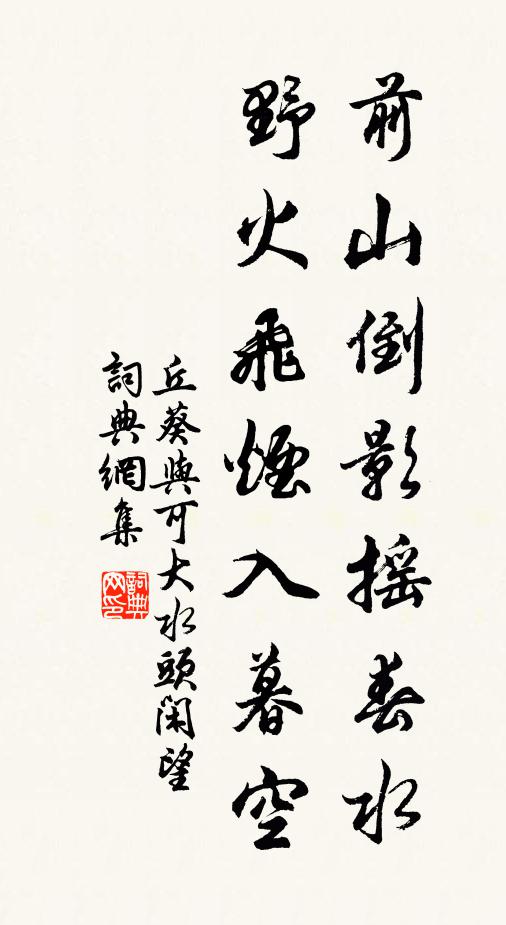 前山倒影搖春水
野火飛煙入暮空
丘葵與可大水頭閑望
詞典網集
詞典
网印